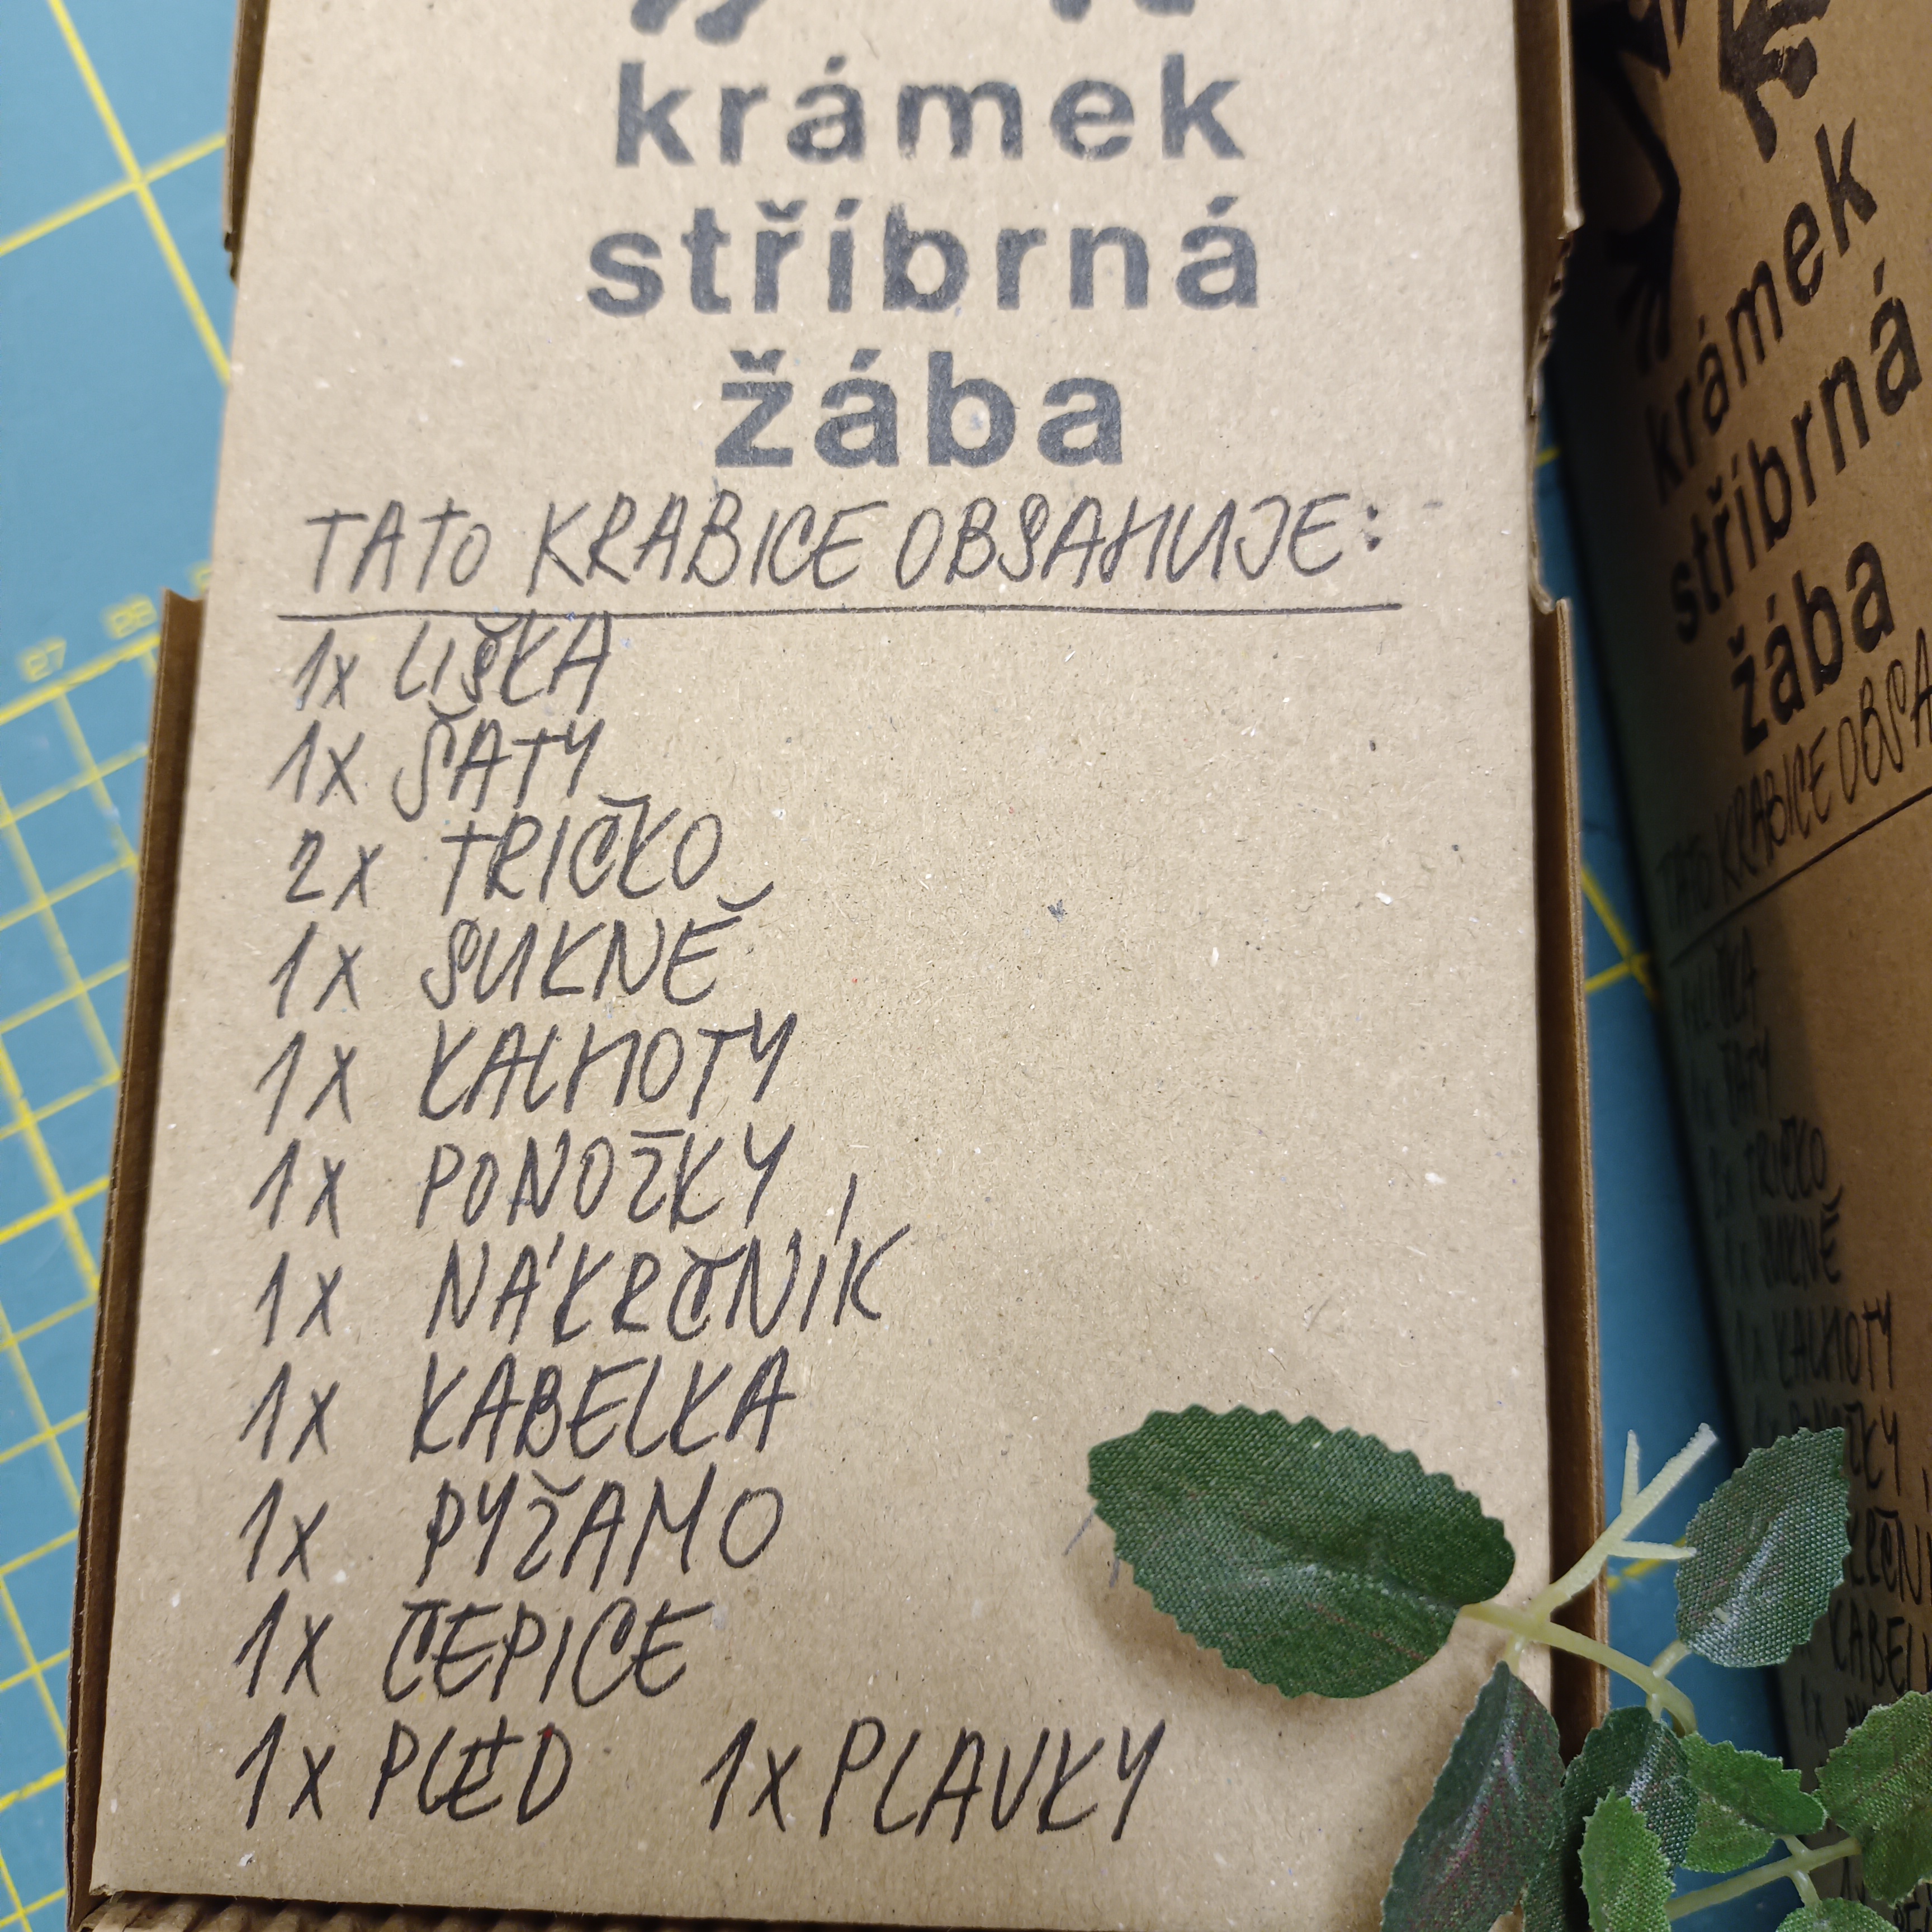 krámek
stříbrná
žába
TATO KRABICE OBSAHUJE:
1x LIŠKA
1x ŠATY
2x TRIČKO
1x SUKNĚ
1x KALHOTY
1x PONOŽKY
1x NÁKRČNÍK
1x KABELKA
1x PYŽAMO
1x ČEPICE
1x PLÉD 1x PLAVKY
krámek
stříbrná
žába
TATO KRABICE OBSA
ŠATY
2x TRIČKO
1x SUKNĚ
1x KALHOTY
KRČNÍ
KABEL
1x
27
28